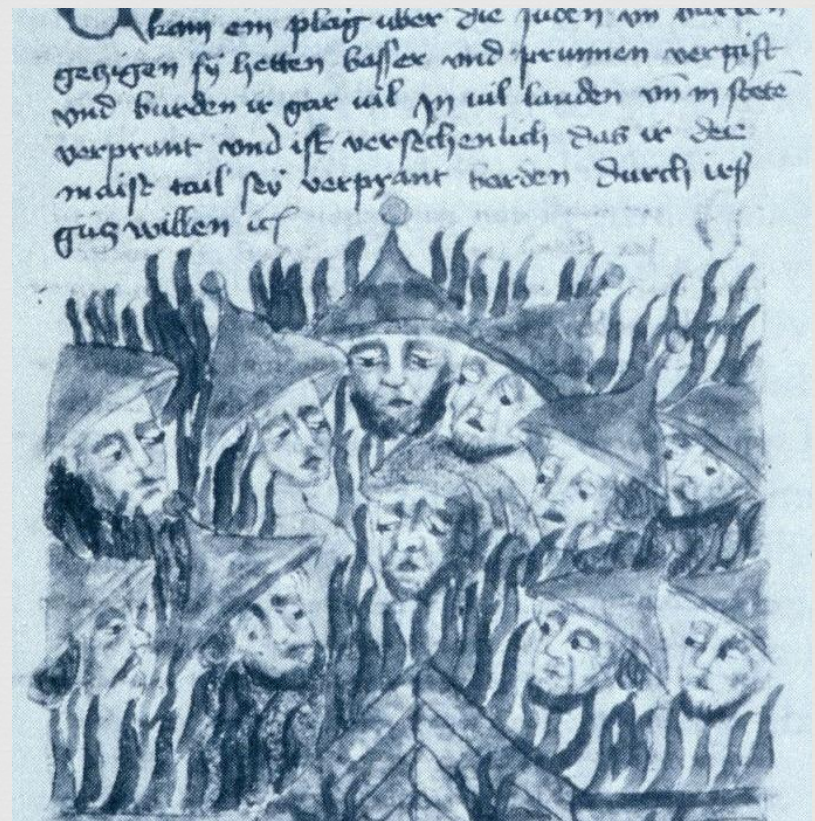 kam ein plag über die juden vn
getzigen sy hetten basser vnd prunnen vergift
vnd burden ir gar uil jn uil landen vn in stete
verprant vnd ist versechenlich das ir der
maist tail sey verprant borden durch irß
gutz willen